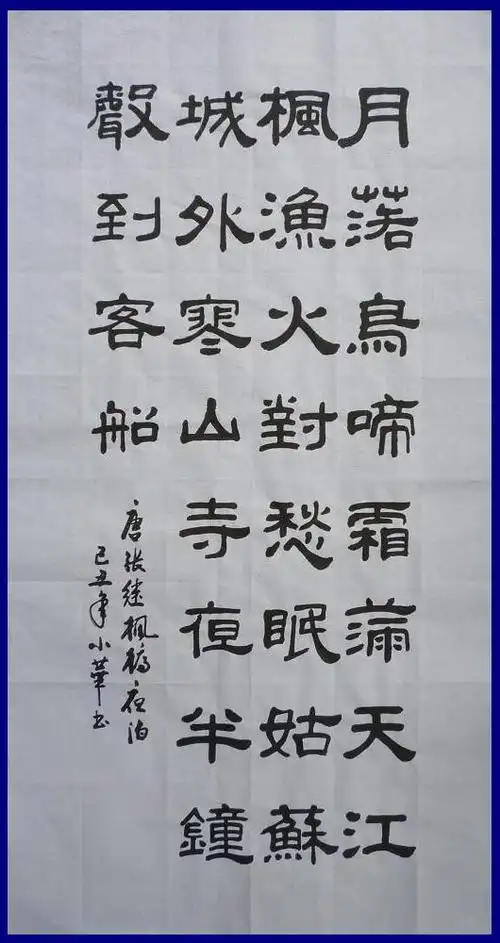 月落烏啼霜滿天江
楓漁火對愁眠姑蘇
城外寒山寺夜半鐘
聲到客船
唐张继枫橋夜泊
己丑年小華书